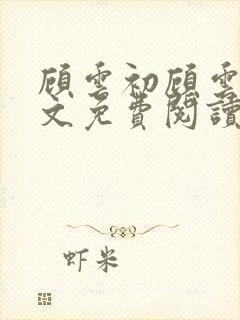 顾雲初顾雲
文免費閱讀
虾米